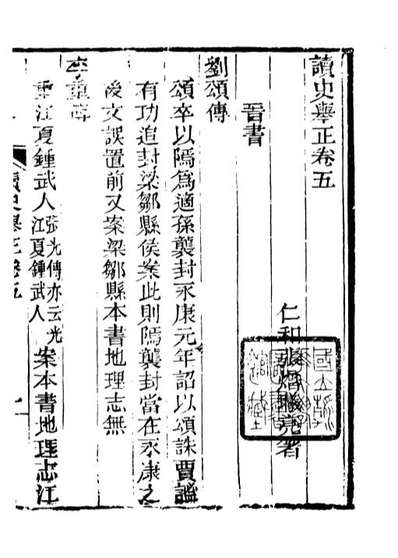 讀史舉正卷五
仁和張熷曦亮著
晉書
劉頌傳
頌卒以隔為適孫襲封永康元年詔以頌誅賈謐
有功追封梁鄒縣侯案此則隔襲封當在永康之
後文誤置前又案梁鄒縣本書地理志無
李重傳
重江夏鍾武人張光傳亦云光江夏鍾武人案本書地理志江
讀史舉正卷五
一